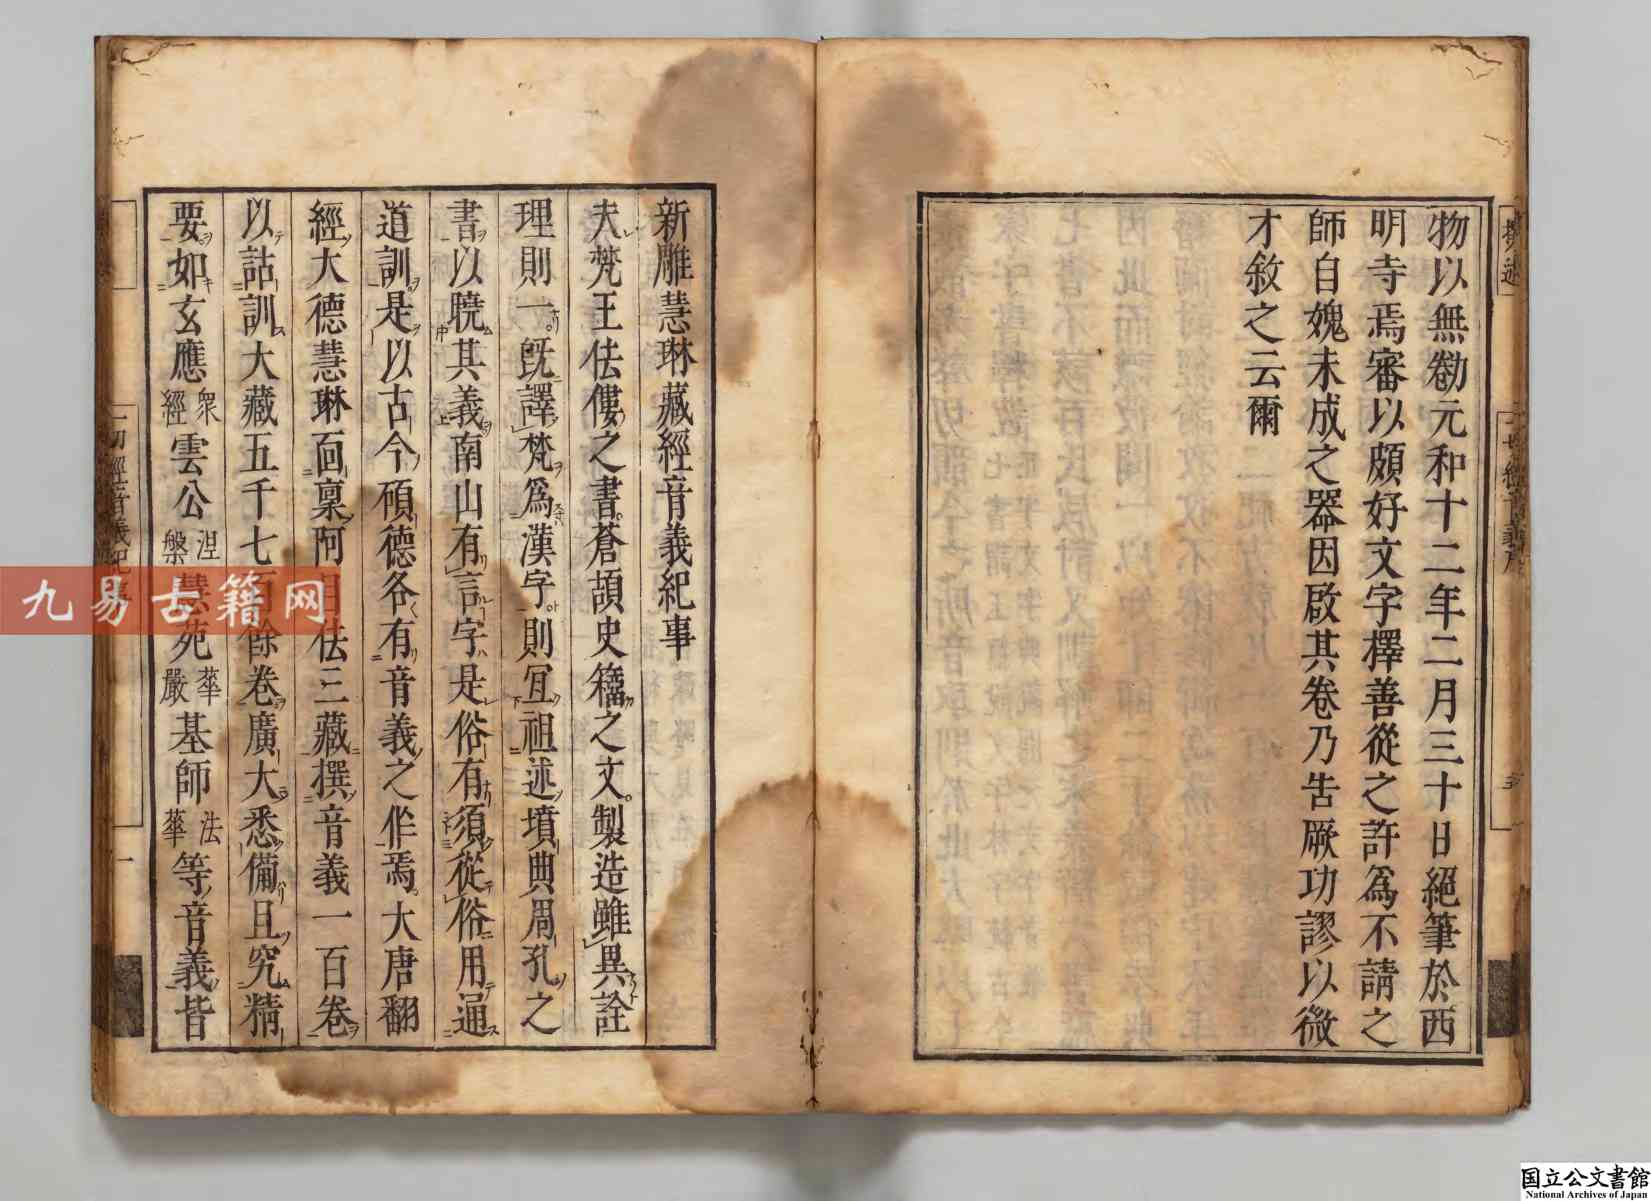 物以無勌元和十二年二月三十日絕筆於西
明寺焉審以頗好文字擇善從之許為不請之
師自媿未成之器因啟其卷乃吿厥功謬以微
才敘之云爾
新雕慧琳藏經音義紀事
夫梵王佉僂之書蒼頡史籀之文製造雖異詮
理則一既譯梵為漢字則冝祖述墳典周孔之
書以曉其義南山有言字是俗有須從俗用通
道訓是以古今碩德各有音義之作焉大唐翻
經大德慧琳面稟阿目佉三藏撰音義一百卷
以詁訓大藏五千七百餘卷廣大悉備且究精
要如玄應衆經雲公涅槃慧苑華嚴基師法華等音義皆
一切經音義紀事
一
九易古籍网
国立公文書館
National Archives of Japan